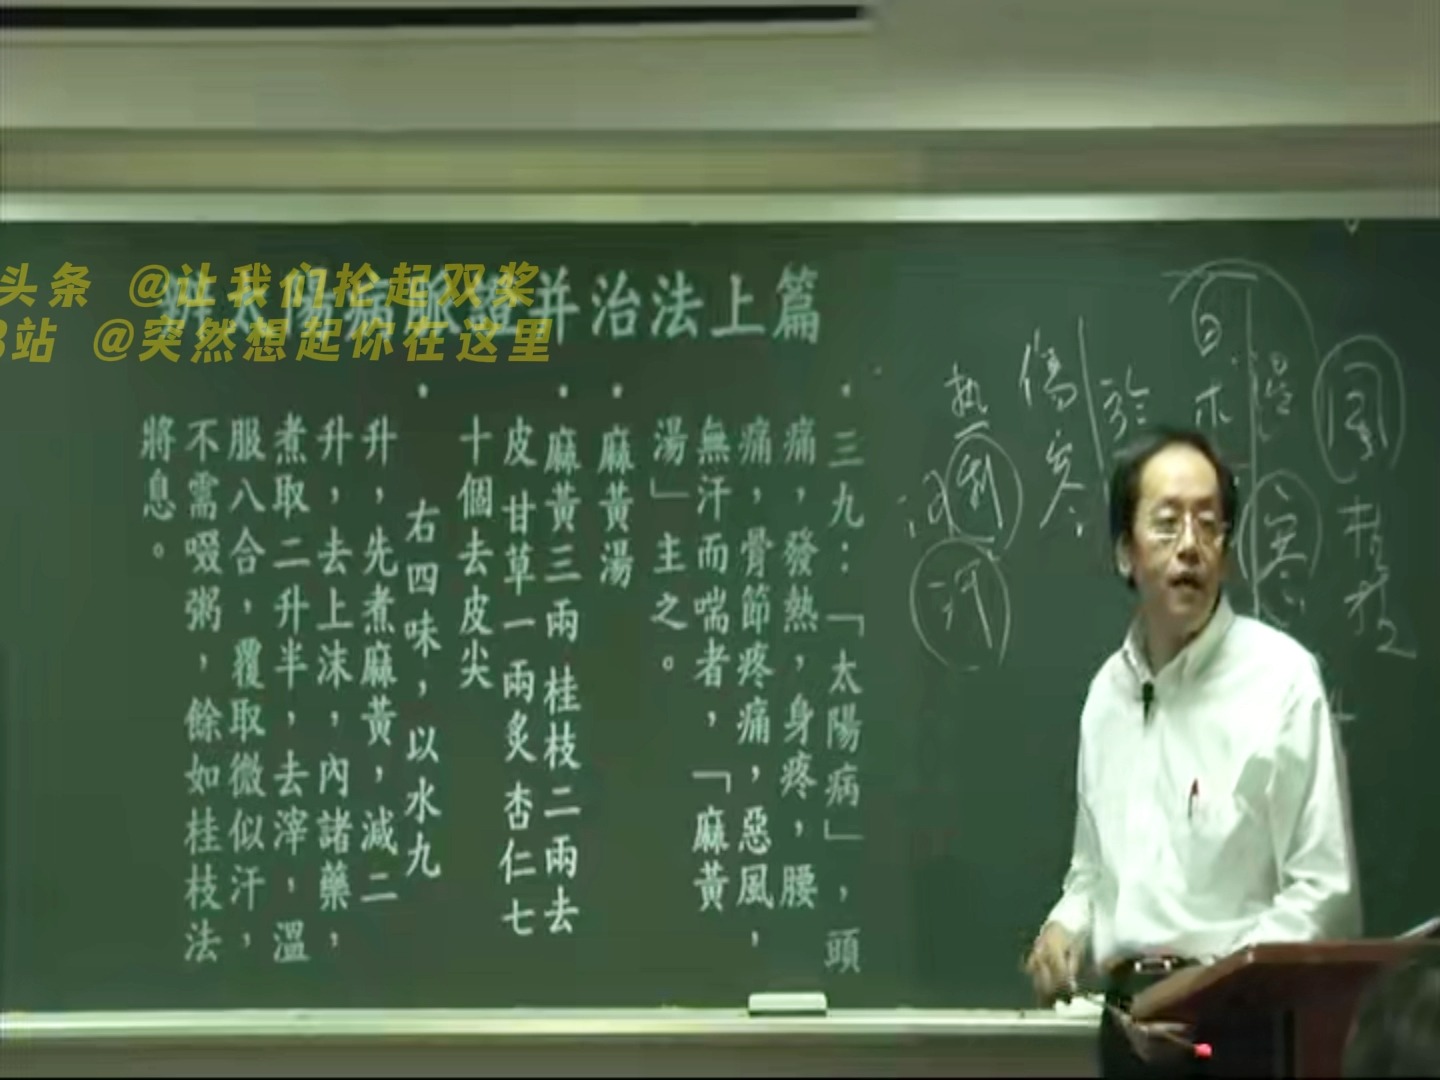 头条 @让我们抡起双桨
B站 @突然想起你在这里
辨太陽病脈證并治法上篇
·三九：「太陽病」，頭
痛，發熱，身疼，腰
痛，骨節疼痛，惡風，
無汗而喘者，「麻黃
湯」主之。
·麻黃湯
·麻黃三兩 桂枝二兩去
皮 甘草一兩炙 杏仁七
十個去皮尖
· 右四味，以水九
升，先煮麻黃，減二
升，去上沫，內諸藥，
煮取二升半，去滓，溫
服八合，覆取微似汗，
不需啜粥，餘如桂枝法
將息。
風
寒
傷寒
热
汗